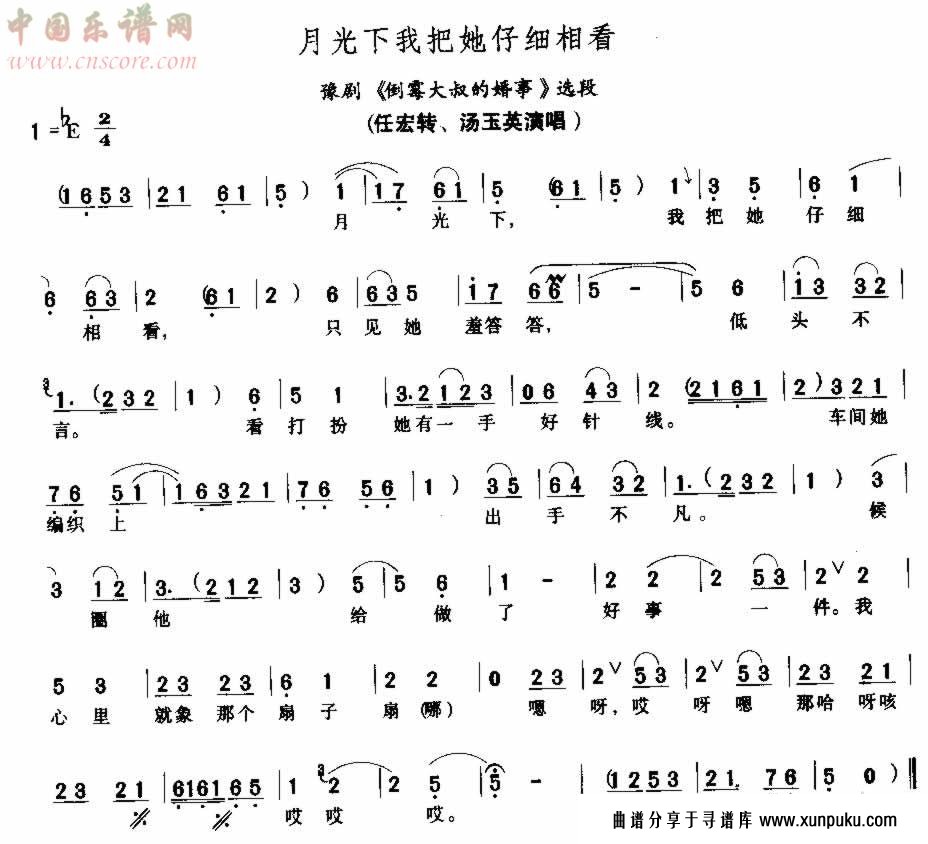 中国乐谱网
www.cnscore.com
月光下我把她仔细相看
豫剧《倒霉大叔的婚事》选段
(任宏转、汤玉英演唱)
1=♭E 2/4
(1 6 5 3 | 2 1 6 1 | 5 ) 1 | 1 7 6 1 | 5 (6 1 | 5 ) 1 | 3 5 | 6 1 |
月 光 下, 我 把 她 仔 细
6 6 3 | 2 (6 1 | 2 ) 6 3 5 | 1 7 6 6 | 5 - | 5 6 | 1 3 3 2 |
相 看, 只 见 她 羞答 答, 低 头 不
3 1. (2 3 2 | 1 ) 6 | 5 1 | 3. 2 1 2 3 | 0 6 4 3 | 2 (2 1 6 1 | 2 ) 3 2 1 |
言。 看 打 扮 她有一 手 好 针 线。 车间她
7 6 5 1 | 1 6 3 2 1 | 7 6 5 6 | 1 ) 3 5 | 6 4 3 2 | 1. (2 3 2 | 1 ) 3 |
编织 上 出 手 不 凡。 候
3 1 2 | 3. (2 1 2 | 3 ) 5 | 5 6 | 1 - | 2 2 | 2 5 3 | 2 ∨ 2 |
圈 他 给 做 了 好 事 一 件。我
5 3 | 2 3 2 3 | 6 1 | 2 2 | 0 2 3 | 2 ∨ 5 3 | 2 ∨ 5 3 | 2 3 2 1 |
心 里 就象 那个 扇 子 扇 (哪) 嗯 呀, 哎 呀 嗯 那哈 呀咳
2 3 2 1 | 6 1 6 1 6 5 | 1 3 2 | 2 5 | 5 - | (1 2 5 3 | 2 1 7 6 | 5 0 ) ‖
哎 哎 哎。
曲谱分享于寻谱库 www.xunpuku.com